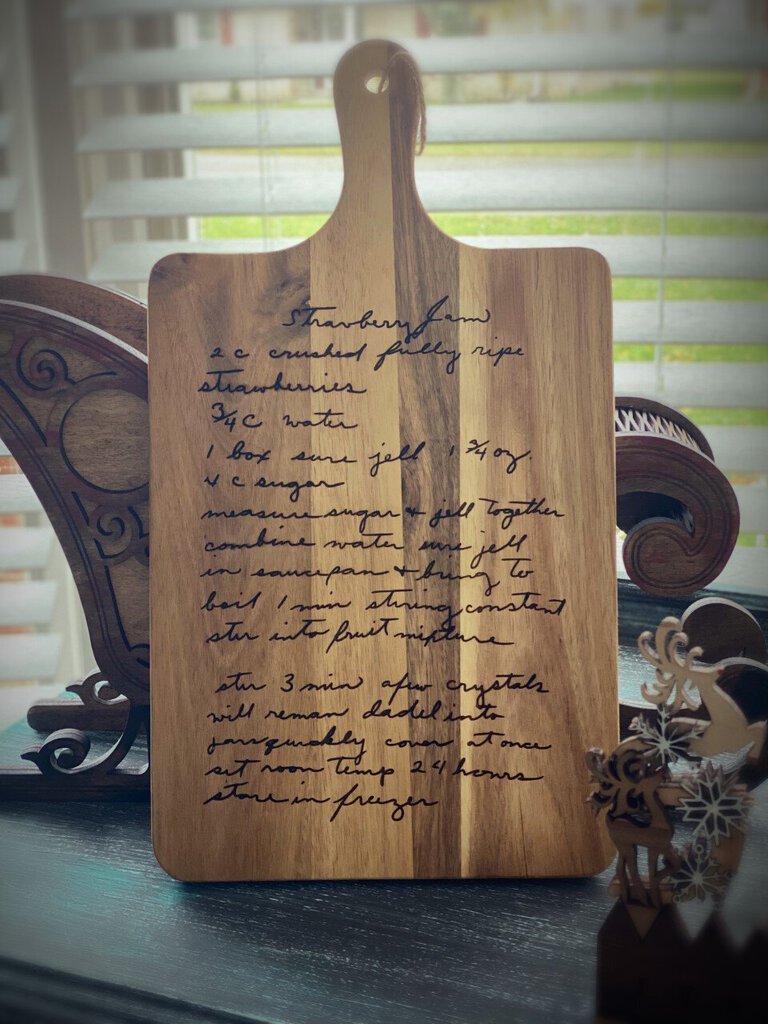 Strawberry Jam
2 c crushed fully ripe
strawberries
3/4 c water
1 box sure jell 1 3/4 oz.
4 c sugar
measure sugar + jell together
combine water sure jell
in saucepan + bring to
boil 1 min stiring constant
stir into fruit mixture
stir 3 min a few crystals
will reman dadel into
jars quickly cover at once
sit room temp 24 hours
store in freezer